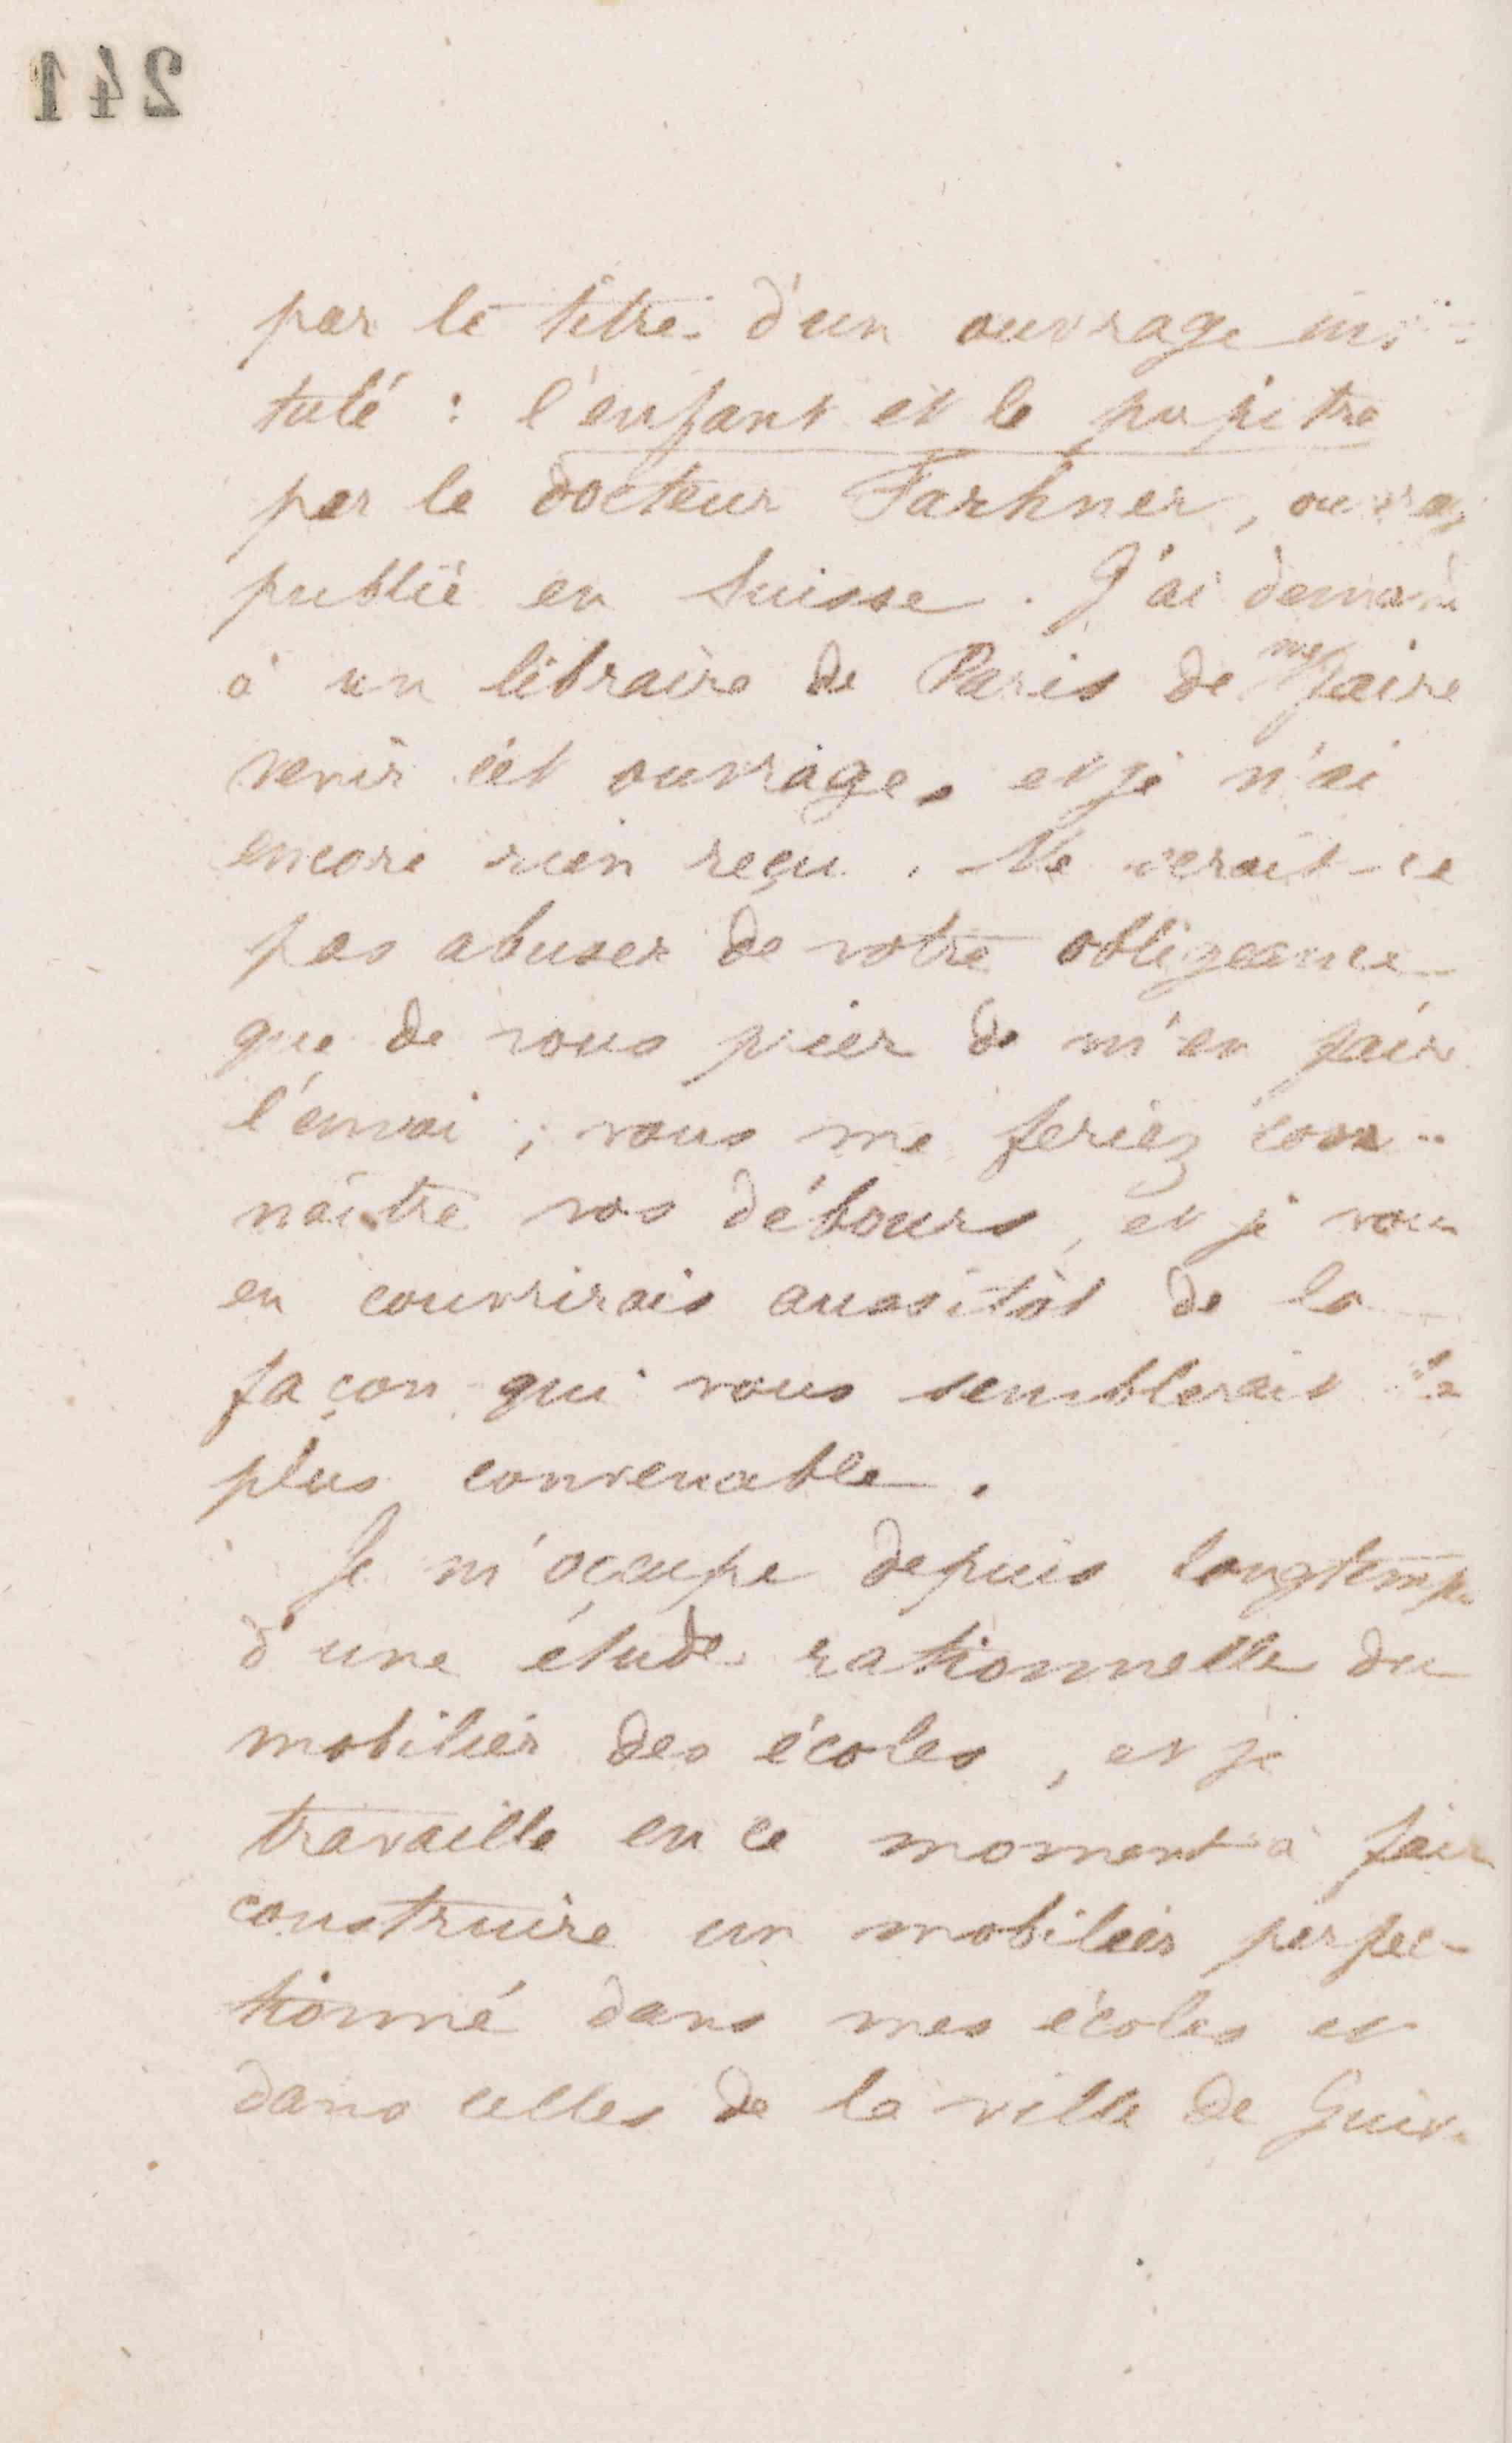 241
par le titre d'un ouvrage in-
tulé : l'enfant et le pupitre
par le docteur Farhner, ouvrag
publié en Suisse. J'ai demandé
à un libraire de Paris de me faire
venir cet ouvrage, et je n'ai
encore rien reçu. Ne serait-ce
pas abuser de votre obligeance
que de vous prier de m'en faire
l'envoi ; vous me feriez con-
naître vos débours, et je vous
en couvrirais aussitôt de la
façon qui vous semblerait la
plus convenable.
Je m'occupe depuis longtemps
d'une étude rationnelle du
mobilier des écoles, et je
travaille en ce moment à faire
construire un mobilier perfec-
tionné dans mes écoles et
dans celles de la ville de